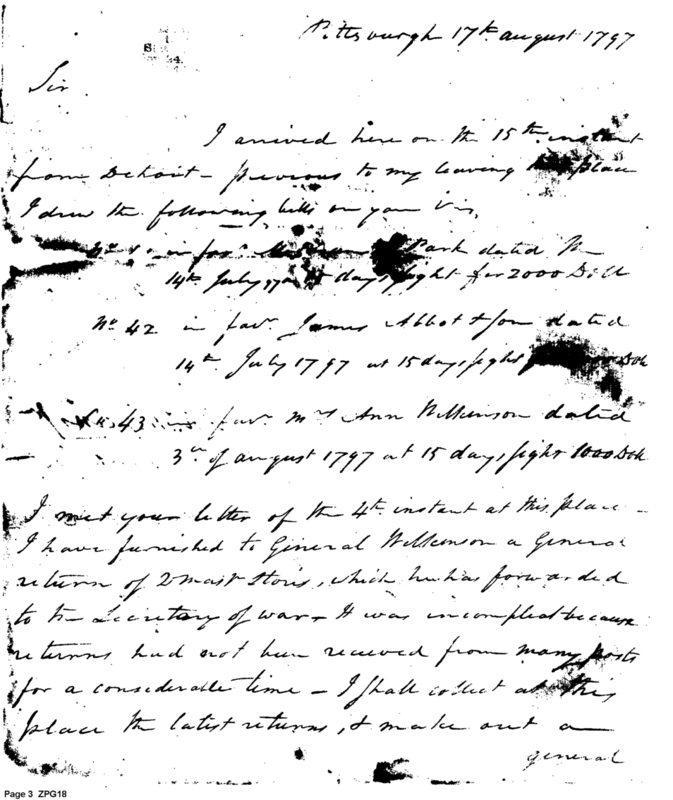 Pittsburgh 17th august 1797
Sir
I arrived here on the 15th instant
from Detroit – previous to my leaving that place
I drew the following bills on you Viz,
in favr Park dated the
14th July 97 at days sight for 2000 Doll
No 42 in favr James Abbot & son dated
14th July 1797 at 15 days sight Dolls
No 43 in favr Mrs Ann Wilkinson dated
3d of august 1797 at 15 days sight 1000 Dolls
I met your letter of the 4th instant at this place –
I have furnished to General Wilkinson a General
return of Qmast Stores, which he has forwarded
to the Secretary of war – It was incompleat because
returns had not been received from many posts
for a considerable time – I shall collect at this
place the latest returns, & make out a
general
Page 3 ZPG18